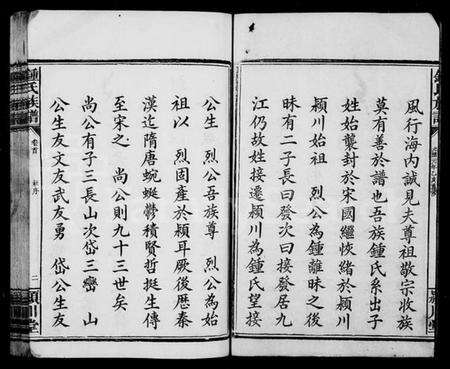 風行海內誠見夫尊祖敬宗收族
莫有善於譜也吾族鍾氏系出子
姓始襲封於宋國繼恢緒於潁川
潁川始祖 烈公為鍾離昧之後
昧有二子長曰發次曰接發居九
江仍故姓接遷潁川為鍾氏望接
公生 烈公吾族尊 烈公為始
祖以 烈固產於潁耳厥後歷秦
漢迄隋唐蜿蜒鬱積賢哲挺生傳
至宋之 尚公則九十三世矣
尚公有子三長山次岱三巒 山
公生友文友武友勇 岱公生友
鍾氏族譜
卷首
二
潁川堂